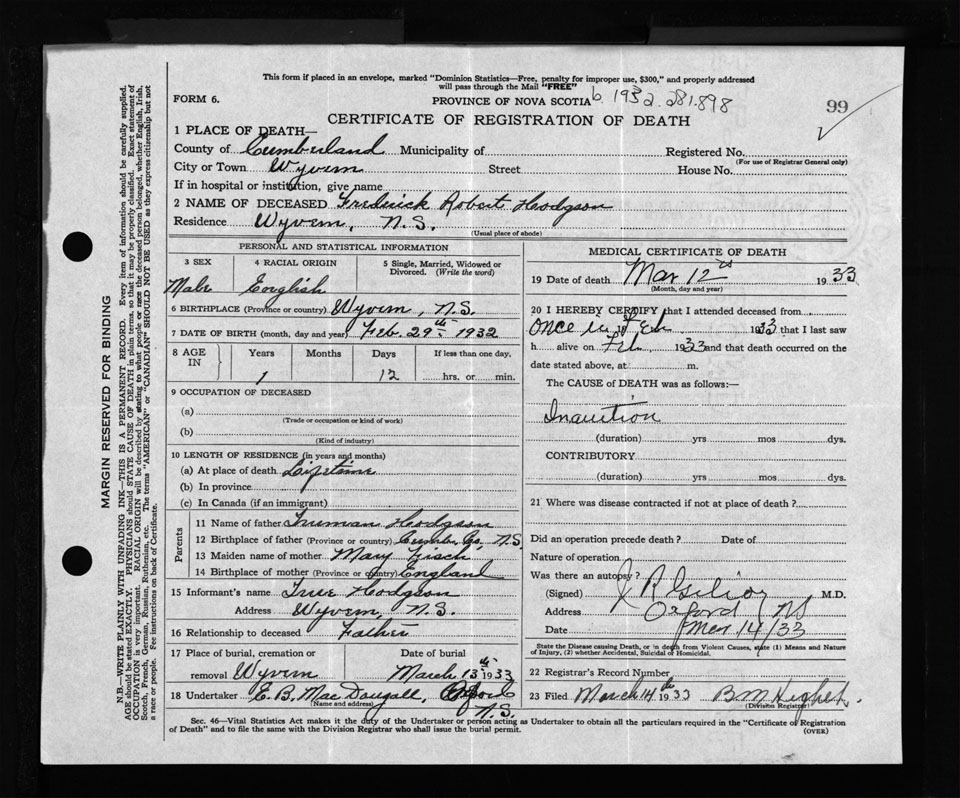 This form if placed in an envelope, marked "Dominion Statistics—Free, penalty for improper use, $300," and properly addressed
will pass through the Mail "FREE"
FORM 6.
PROVINCE OF NOVA SCOTIA b. 1932. 281898
99
CERTIFICATE OF REGISTRATION OF DEATH
1 PLACE OF DEATH—
County of Cumberland Municipality of Registered No.
(For use of Registrar General only)
City or Town Wyvern Street House No.
If in hospital or institution, give name
2 NAME OF DECEASED Frederick Robert Hodgson
Residence Wyvern, N.S.
(Usual place of abode)
PERSONAL AND STATISTICAL INFORMATION
3 SEX 4 RACIAL ORIGIN 5 Single, Married, Widowed or
Divorced. (Write the word)
Male English
6 BIRTHPLACE (Province or country) Wyvern, N.S.
7 DATE OF BIRTH (month, day and year) Feb. 29th 1932
8 AGE IN Years Months Days If less than one day,
1 12 hrs. or min.
9 OCCUPATION OF DECEASED
(a)
(Trade or occupation or kind of work)
(b)
(Kind of industry)
10 LENGTH OF RESIDENCE (in years and months)
(a) At place of death Lifetime
(b) In province
(c) In Canada (if an immigrant)
Parents
11 Name of father Truman Hodgson
12 Birthplace of father (Province or country) Cumb. Co, N.S.
13 Maiden name of mother Mary
14 Birthplace of mother (Province or country) England
15 Informant's name Hodgson
Address Wyvern, N.S.
16 Relationship to deceased Father
17 Place of burial, cremation or Date of burial
removal Wyvern March 13th 1933
18 Undertaker E. B. MacDougall, Oxford
(Name and address) N.S.
MEDICAL CERTIFICATE OF DEATH
19 Date of death Mar 12 1933
(Month, day and year)
20 I HEREBY CERTIFY that I attended deceased from
once in Feb 1933 that I last saw
h alive on Feb 1933 and that death occurred on the
date stated above, at m.
The CAUSE of DEATH was as follows:—
Inanition
(duration) yrs mos dys.
CONTRIBUTORY
(duration) yrs mos dys.
21 Where was disease contracted if not at place of death?
Did an operation precede death? Date of
Nature of operation
Was there an autopsy?
(Signed) J R M.D.
Address Oxford NS
Date Mar 14/33
State the Disease causing Death, or in death from Violent Causes, state (1) Means and Nature
of Injury, (2) whether Accidental, Suicidal or Homicidal.
22 Registrar's Record Number
23 Filed March 14th 1933 B M
(Division Registrar)
Sec. 46—Vital Statistics Act makes it the duty of the Undertaker or person acting as Undertaker to obtain all the particulars required in the "Certificate of Registration
of Death" and to file the same with the Division Registrar who shall issue the burial permit.
(OVER)
MARGIN RESERVED FOR BINDING
N.B.—WRITE PLAINLY WITH UNFADING INK—THIS IS A PERMANENT RECORD. Every item of information should be carefully supplied.
AGE should be stated EXACTLY. PHYSICIANS should STATE CAUSE OF DEATH in plain terms, so that it may be properly classified. Exact statement of
OCCUPATION is very important. RACIAL ORIGIN will be described by stating to what people or race the deceased person belonged, whether English, Irish,
Scotch, French, German, Russian, Ruthenian, etc. The terms "AMERICAN" or "CANADIAN" SHOULD NOT BE USED as they express citizenship but not
a race or people. See instructions on back of Certificate.